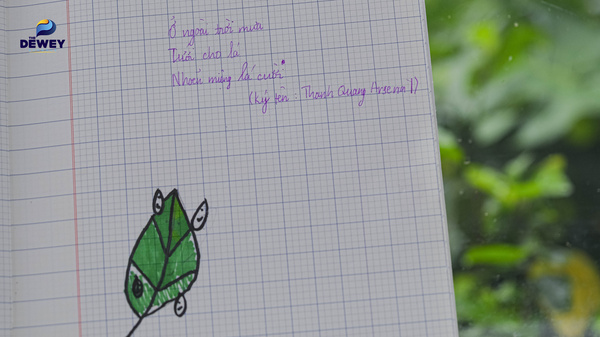 THE DEWEY
Ở ngoài trời mưa
Tưới cho lá
Nhoẻn miệng lá cười
(ký tên: Thanh Quang Arsenal)